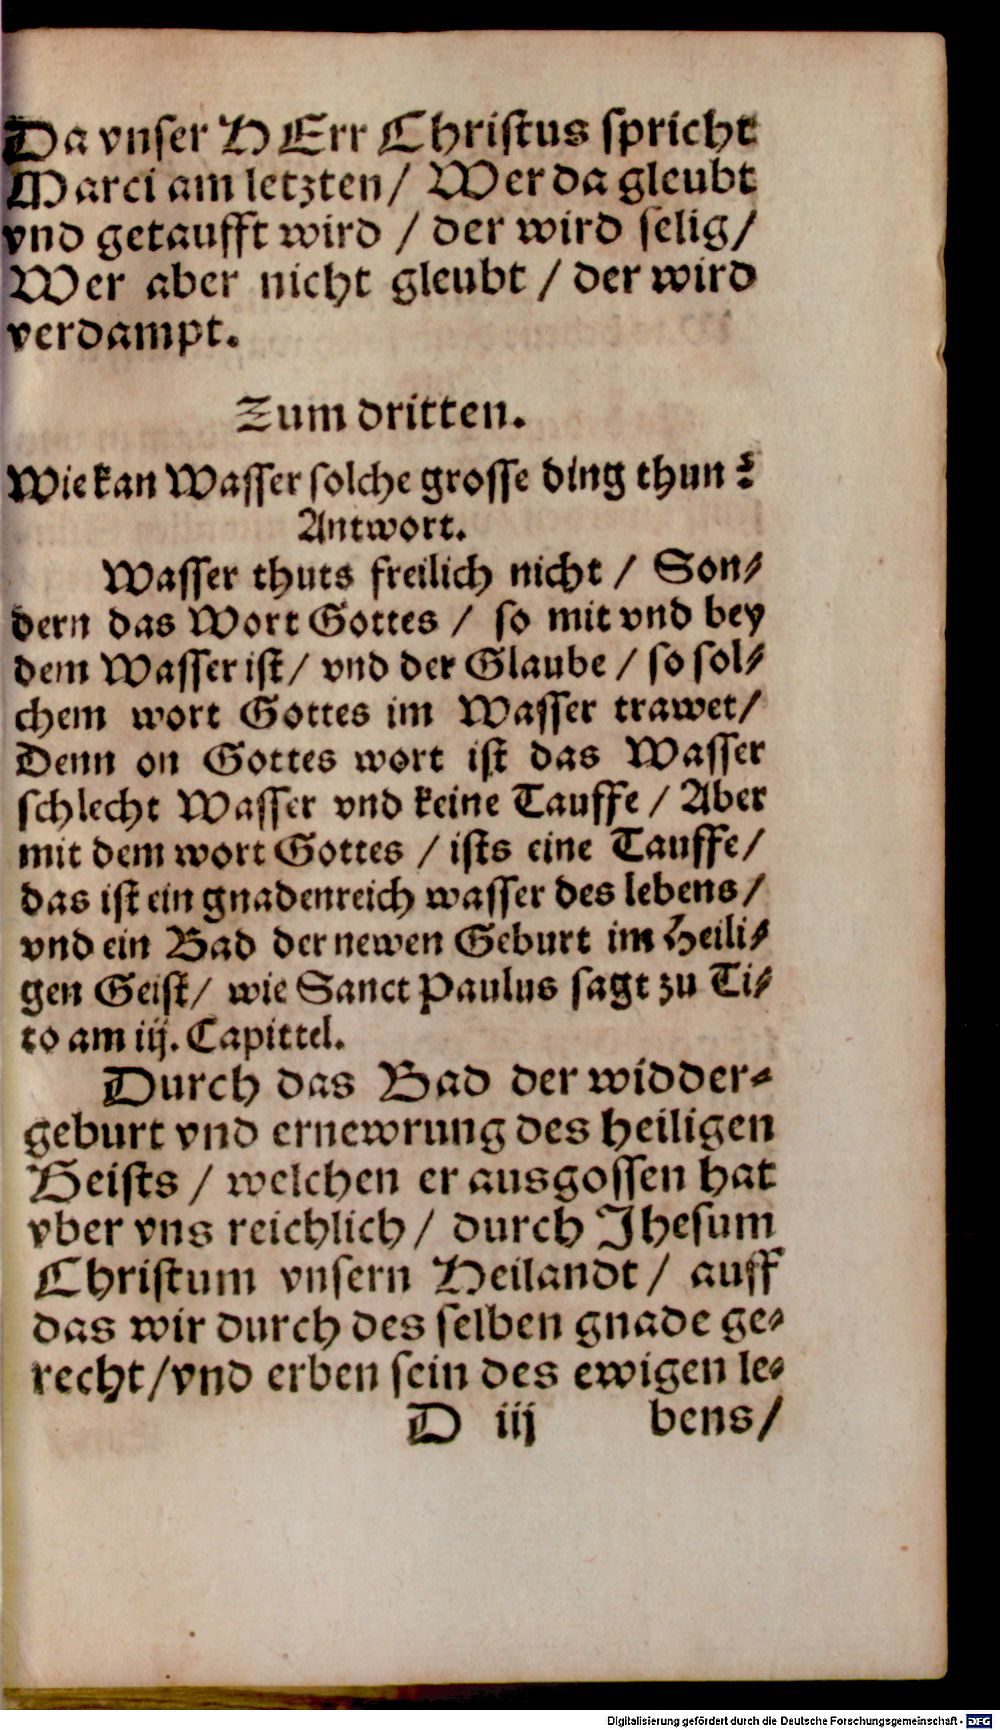 Da vnſer HErr Chriſtus ſpricht
Marci am letzten / Wer da gleubt
vnd getaufft wird / der wird ſelig /
Wer aber nicht gleubt / der wird
verdampt.
Zum dritten.
Wie kan Waſſer ſolche groſſe ding thun?
Antwort.
Waſſer thuts freilich nicht / Son⸗
dern das Wort Gottes / ſo mit vnd bey
dem Waſſer iſt / vnd der Glaube / ſo ſol⸗
chem wort Gottes im Waſſer trawet /
Denn on Gottes wort iſt das Waſſer
ſchlecht Waſſer vnd keine Tauffe / Aber
mit dem wort Gottes / iſts eine Tauffe /
das iſt ein gnadenreich waſſer des lebens /
vnd ein Bad der newen Geburt im Heili⸗
gen Geiſt / wie Sanct Paulus ſagt zu Ti⸗
to am iij. Capittel.
Durch das Bad der widder⸗
geburt vnd ernewrung des heiligen
Geiſts / welchen er ausgoſſen hat
vber vns reichlich / durch Jheſum
Chriſtum vnſern Heilandt / auff
das wir durch des ſelben gnade ge⸗
recht / vnd erben ſein des ewigen le⸗
D iij bens /
Digitalisierung gefördert durch die Deutsche Forschungsgemeinschaft - DFG